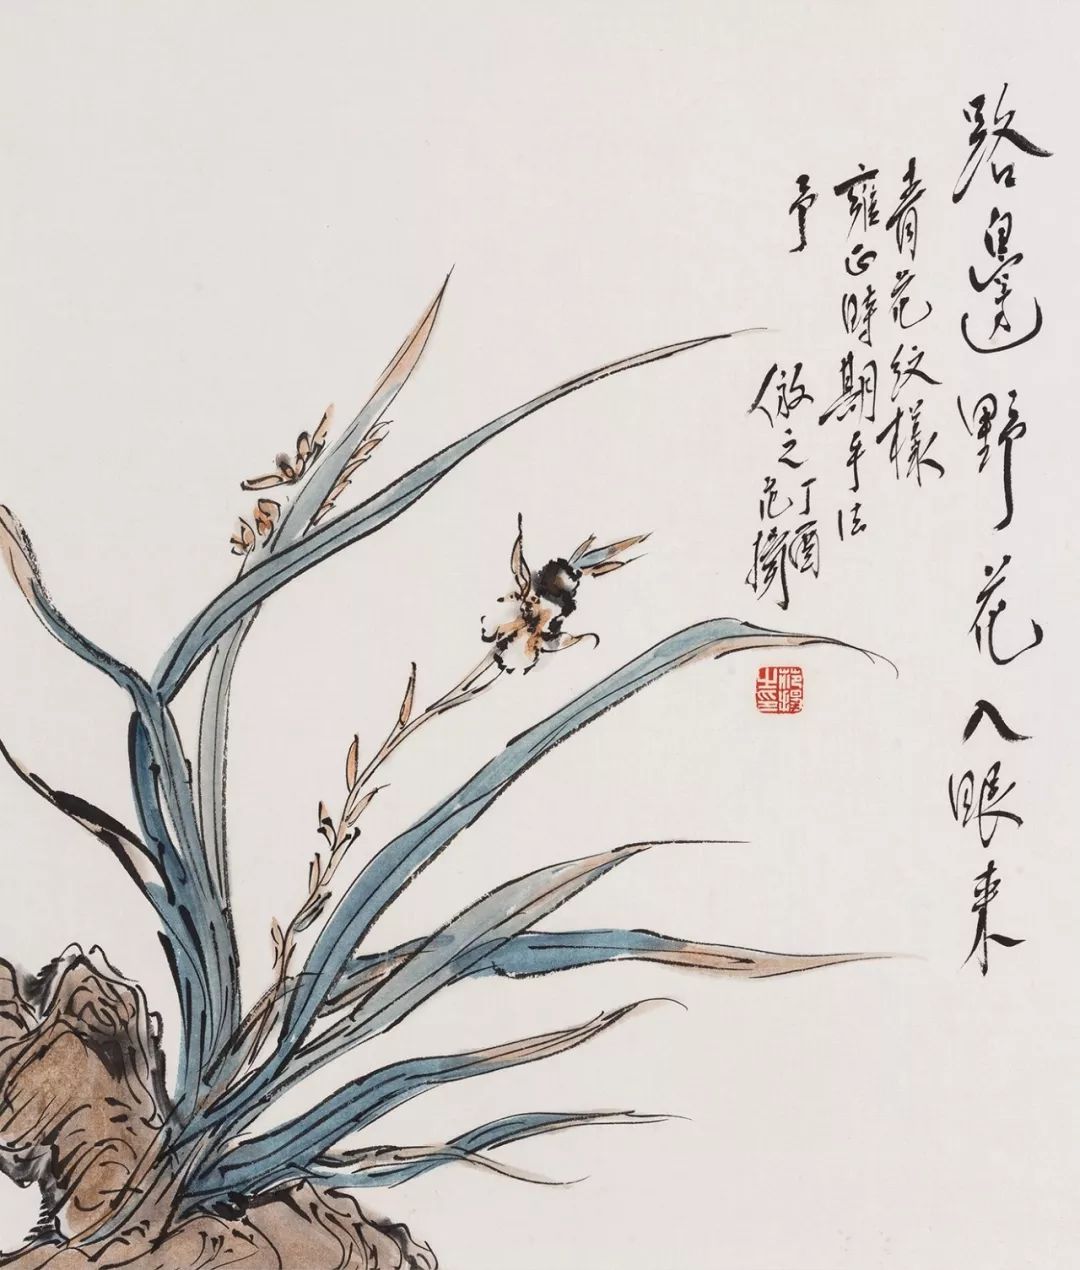 路邊野花入眼來
青花紋樣
雍正時期手法
予
倣之丁酉
范擴